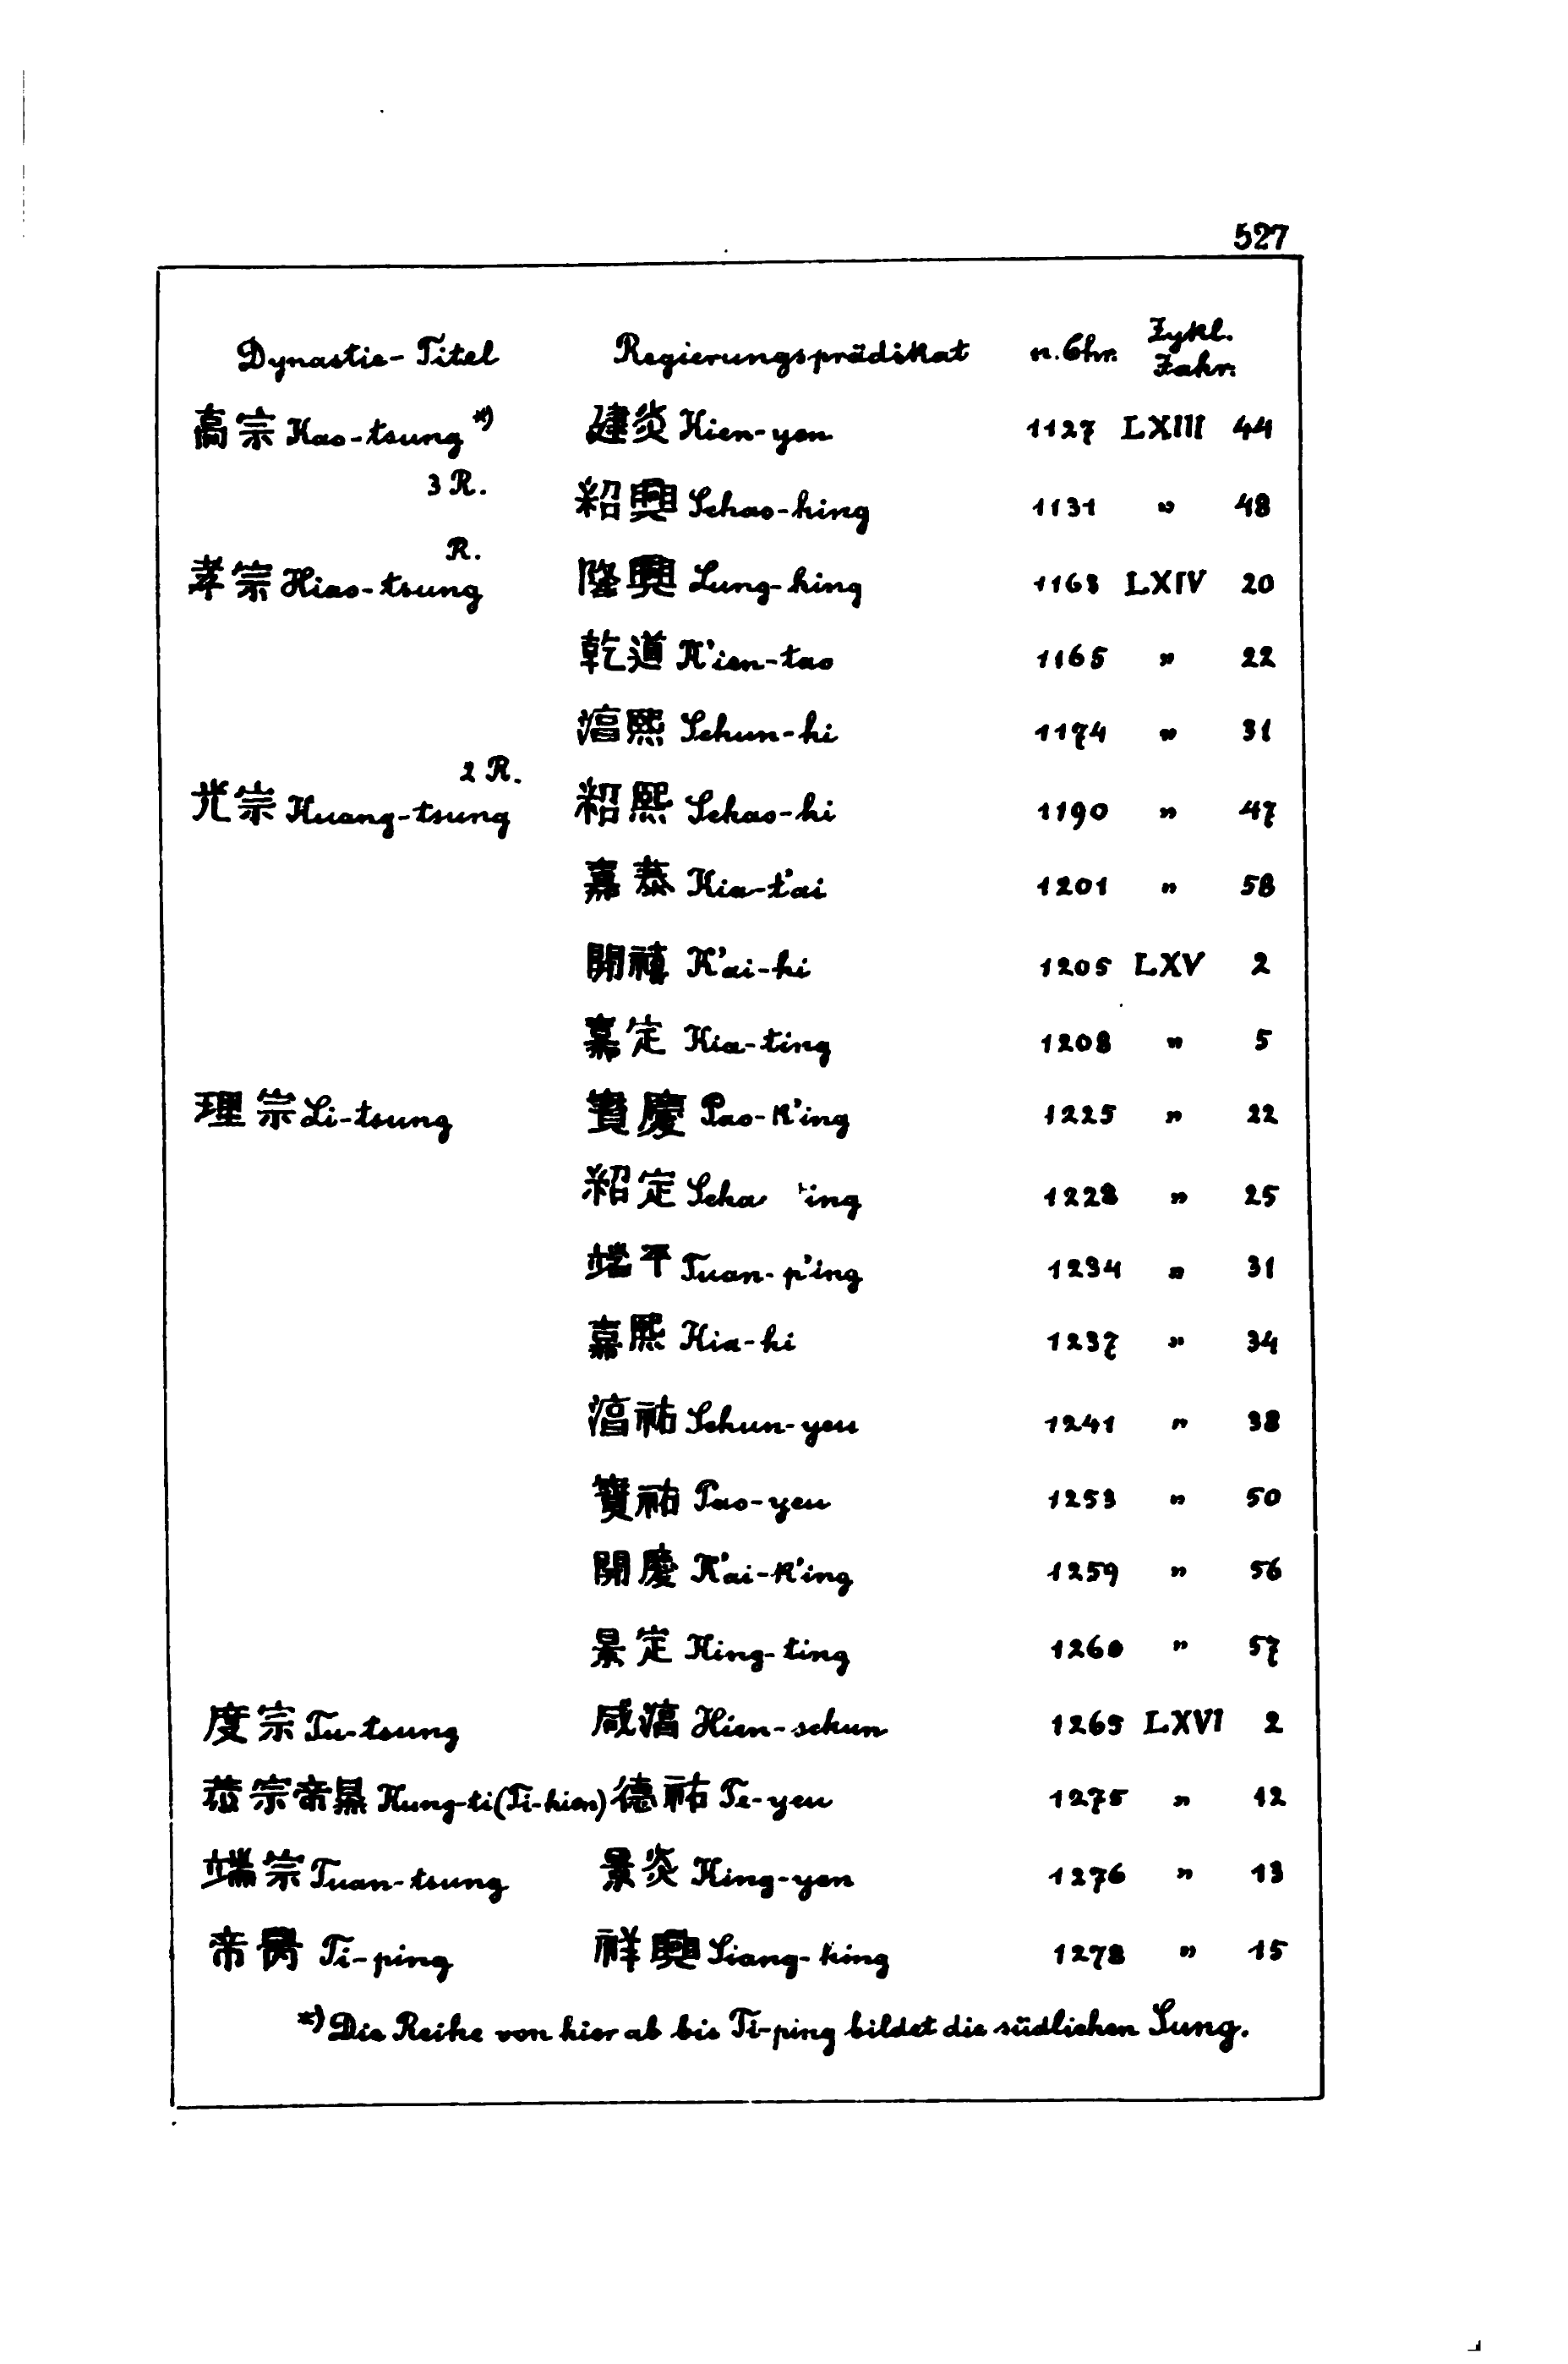 527
Dynastie-Titel Regierungsprädikat n. Chr. Zykl. Jahr.
高宗 Kao-tsung *) 建炎 Kien-yen 1127 LXIII 44
3 R. 紹興 Schao-hing 1131 " 48
孝宗 Hiao-tsung R. 隆興 Lung-hing 1163 LXIV 20
乾道 K'ien-tao 1165 " 22
淳熙 Schun-hi 1174 " 31
光宗 Kuang-tsung 2 R. 紹熙 Schao-hi 1190 " 47
嘉泰 Kia-t'ai 1201 " 58
開禧 K'ai-hi 1205 LXV 2
嘉定 Kia-ting 1208 " 5
理宗 Li-tsung 寶慶 Pao-k'ing 1225 " 22
紹定 1228 " 25
端平 Tuan-p'ing 1234 " 31
嘉熙 Kia-hi 1237 " 34
淳祐 Schun-yeu 1241 " 38
寶祐 Pao-yeu 1253 " 50
開慶 K'ai-k'ing 1259 " 56
景定 King-ting 1260 " 57
度宗 Tu-tsung 咸淳 Hien-schun 1265 LXVI 2
恭宗帝㬎 Kung-ti (Ti-hien) 德祐 Te-yeu 1275 " 12
端宗 Tuan-tsung 景炎 King-yen 1276 " 13
帝昺 Ti-ping 祥興 Siang-hing 1278 " 15
*) Die Reihe von hier ab bis Ti-ping bildet die südlichen Sung.